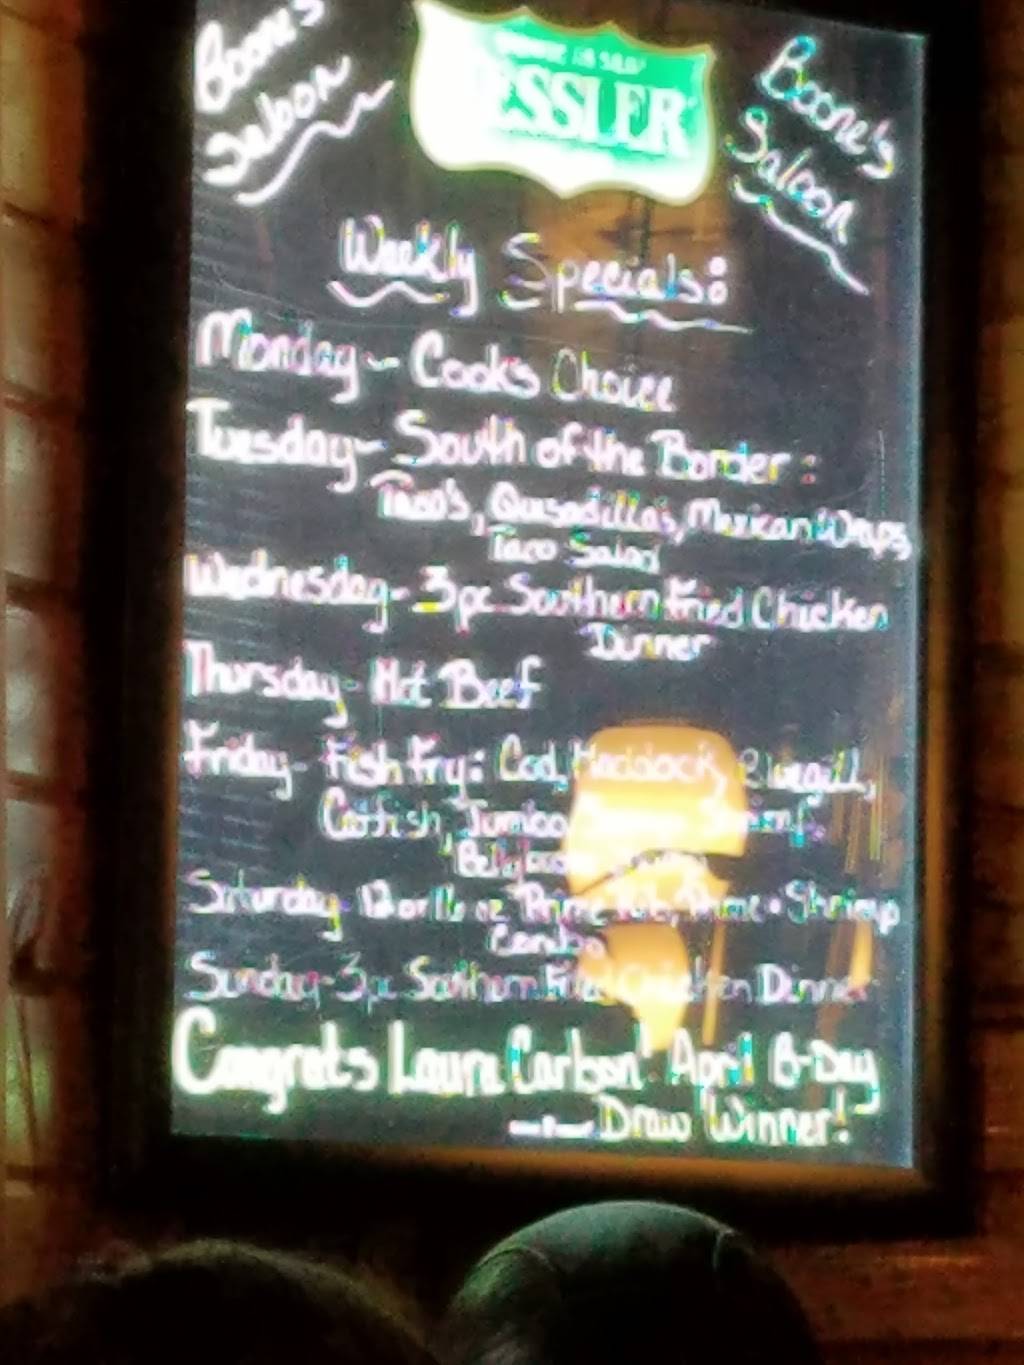 Boone's
Saloon
ESSLER
Boone's
Saloon
Weekly Specials:
Monday - Cooks Choice
Tuesday - South of the Border :
Taco's, Quisadilla's, Mexican Wraps
Taco Salad
Wednesday - 3pc Southern Fried Chicken
Dinner
Thursday - Hot Beef
Friday - Fish Fry: Cod, Haddock, Bluegill,
Catfish, Jumbo
Saturday - 12 or 16 oz Prime Rib, Prime + Shrimp
Combo
Sunday - 3pc Southern Fried Chicken Dinner
Congrats Laura Carlson! April B-Day
Draw Winner!